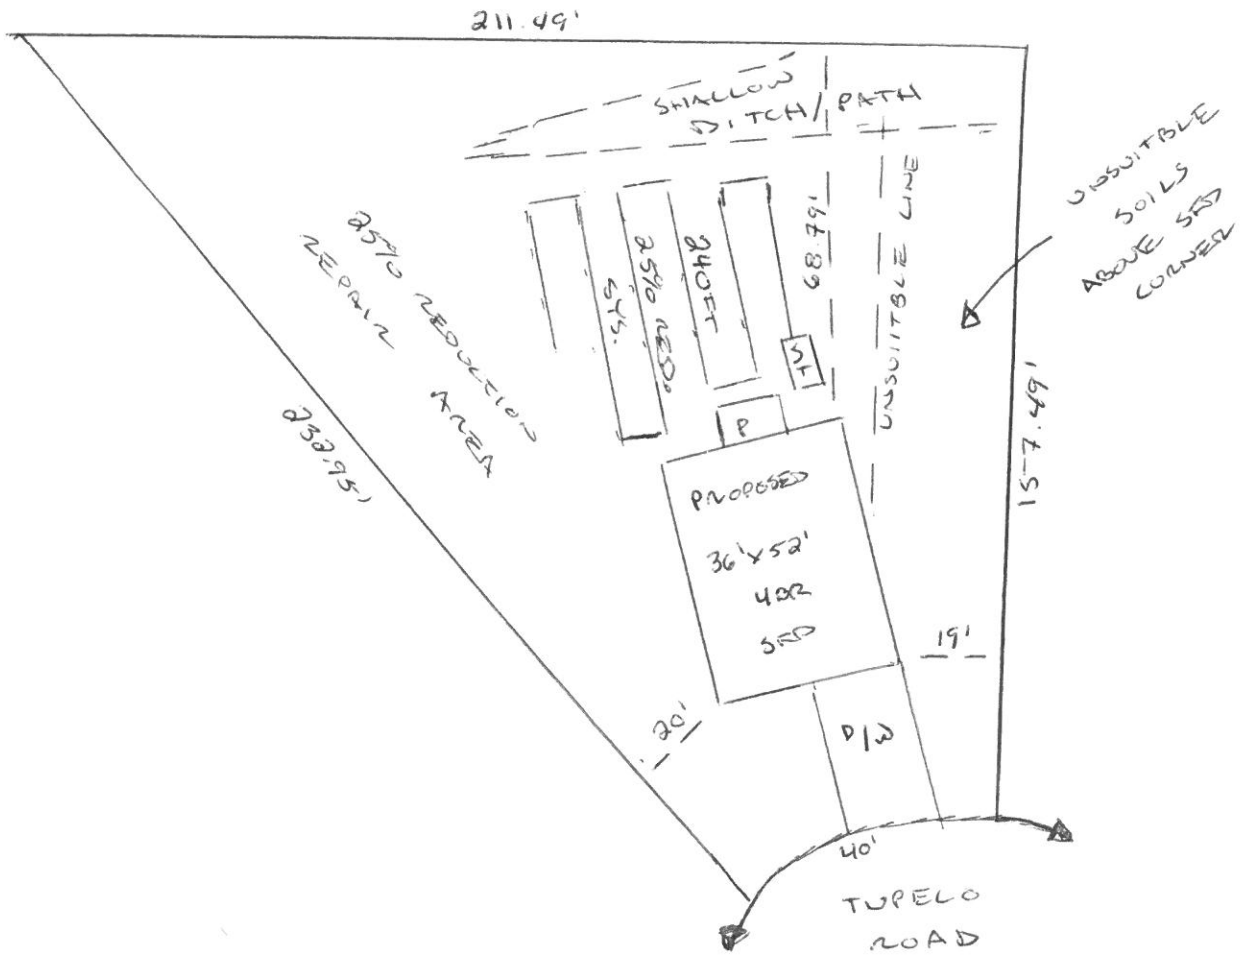 211.49'
SHALLOW
DITCH/PATH
UNSUITBLE
SOILS
ABOVE SFD
CORNER
25% REDUCTION
REPAIR
AREA
SYS.
25% RED.
240FT
68.79'
UNSUITBLE LINE
ST
P
232.95'
157.49'
PROPOSED
36'x52'
4BR
SFD
19'
20'
D/W
40'
TUPELO
ROAD